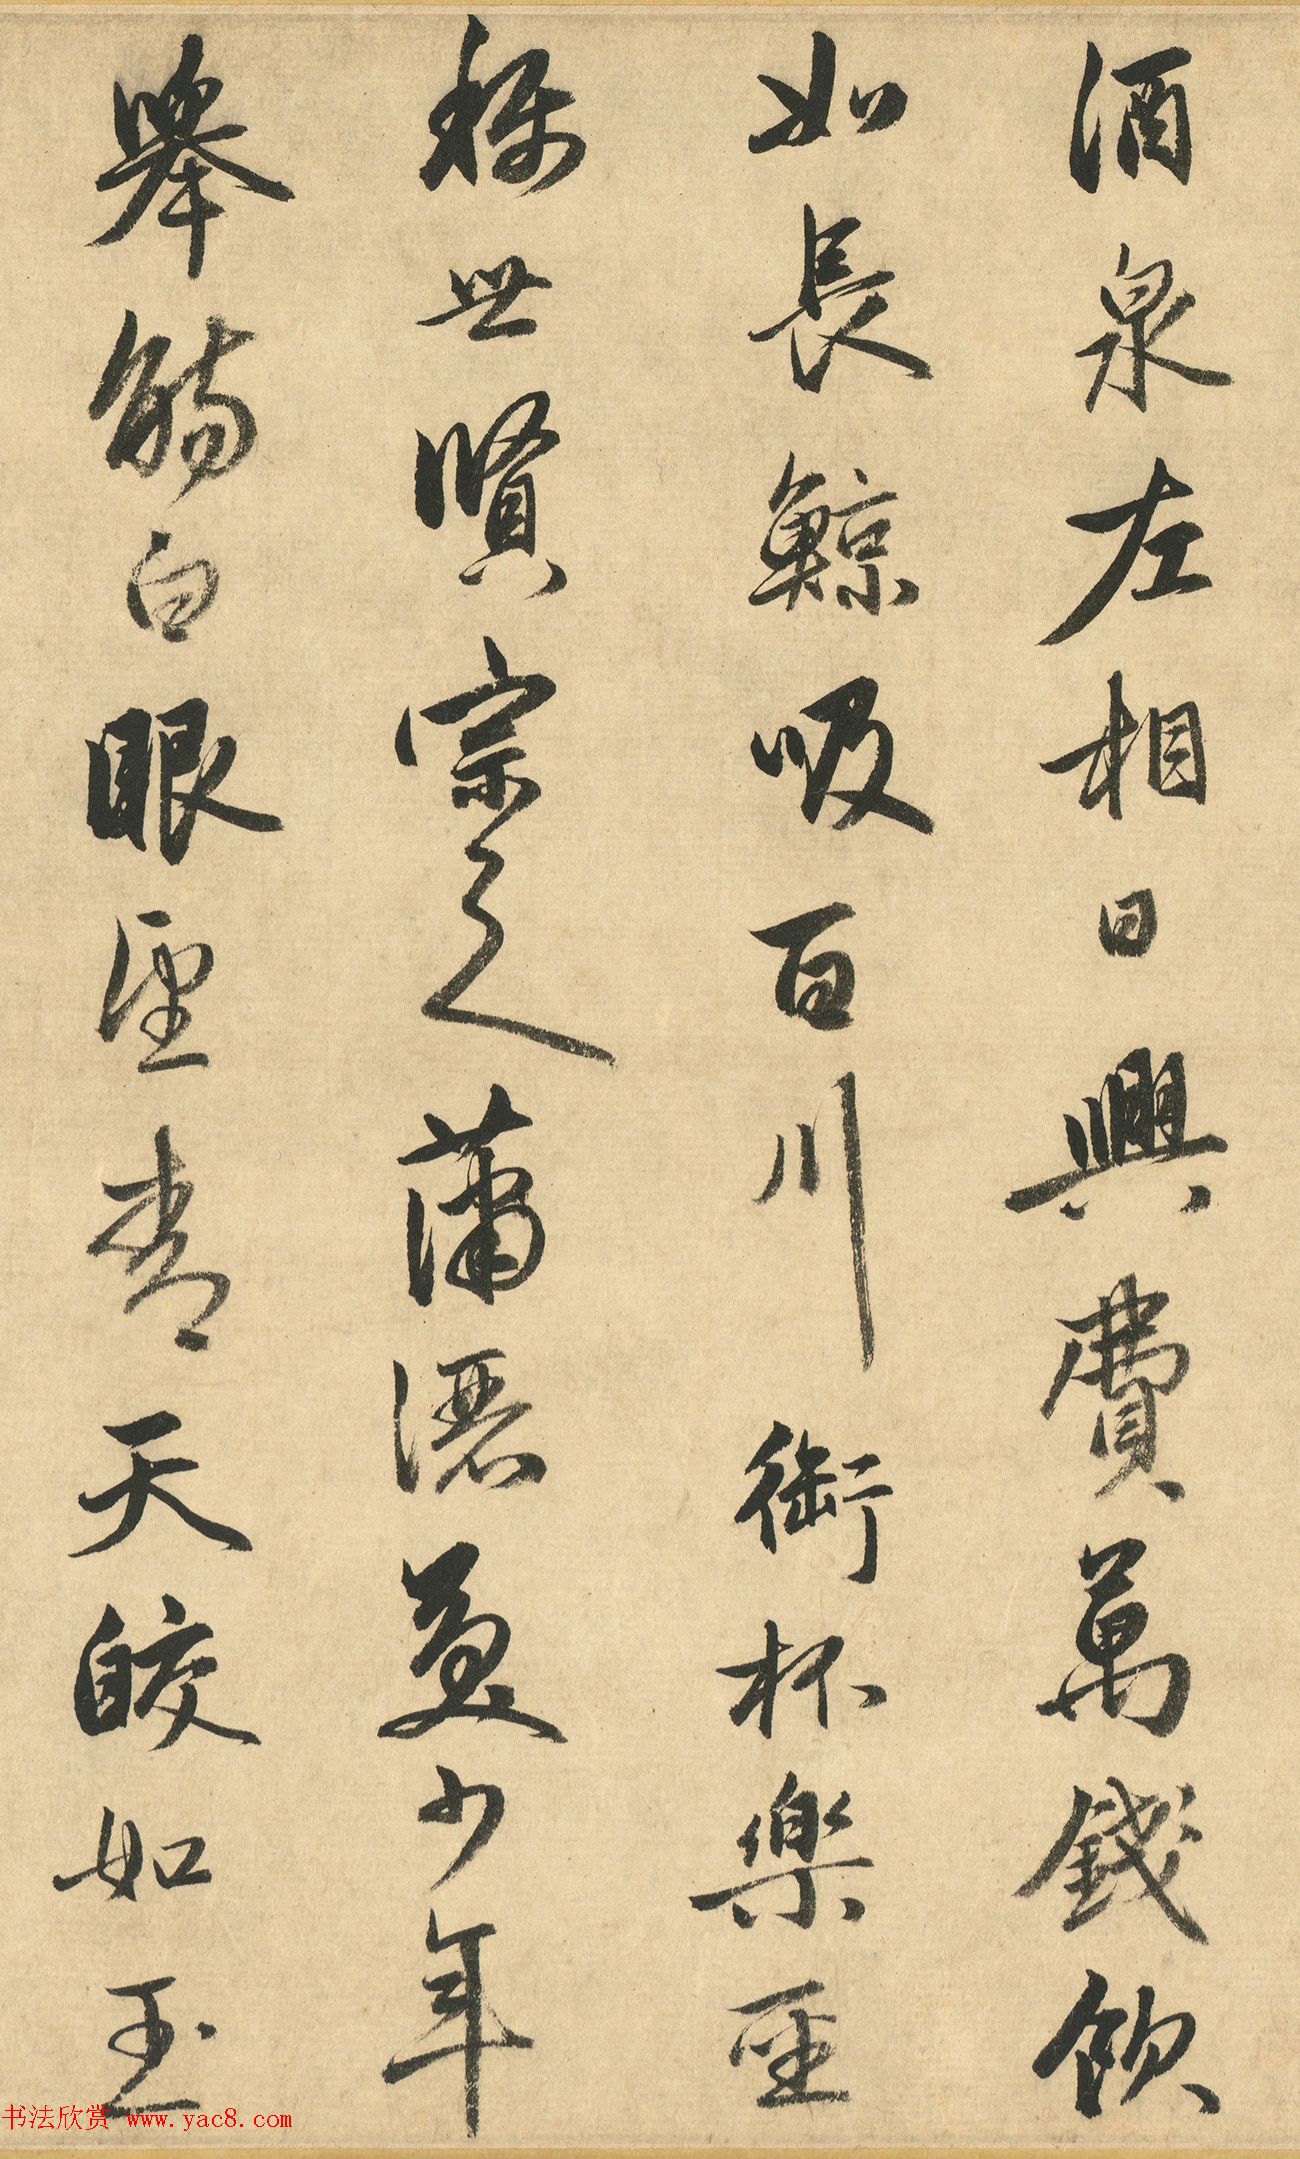 酒泉左相日興費萬錢飲
如長鯨吸百川銜杯樂聖
稱世賢宗之蕭灑美少年
舉觴白眼望青天皎如玉
书法欣赏 www.yac8.com